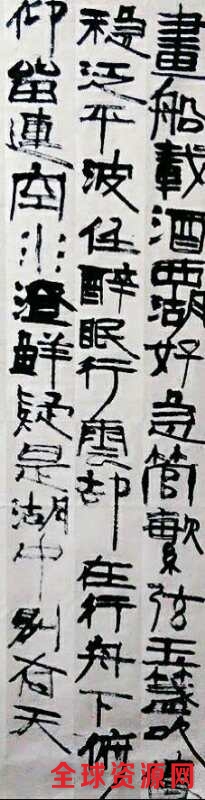 畫船載酒西湖好急管繁弦玉盞
穩泛平波任醉眠行雲却在行舟下俯
仰留連空水澄鮮疑是湖中別有天
全球资源网